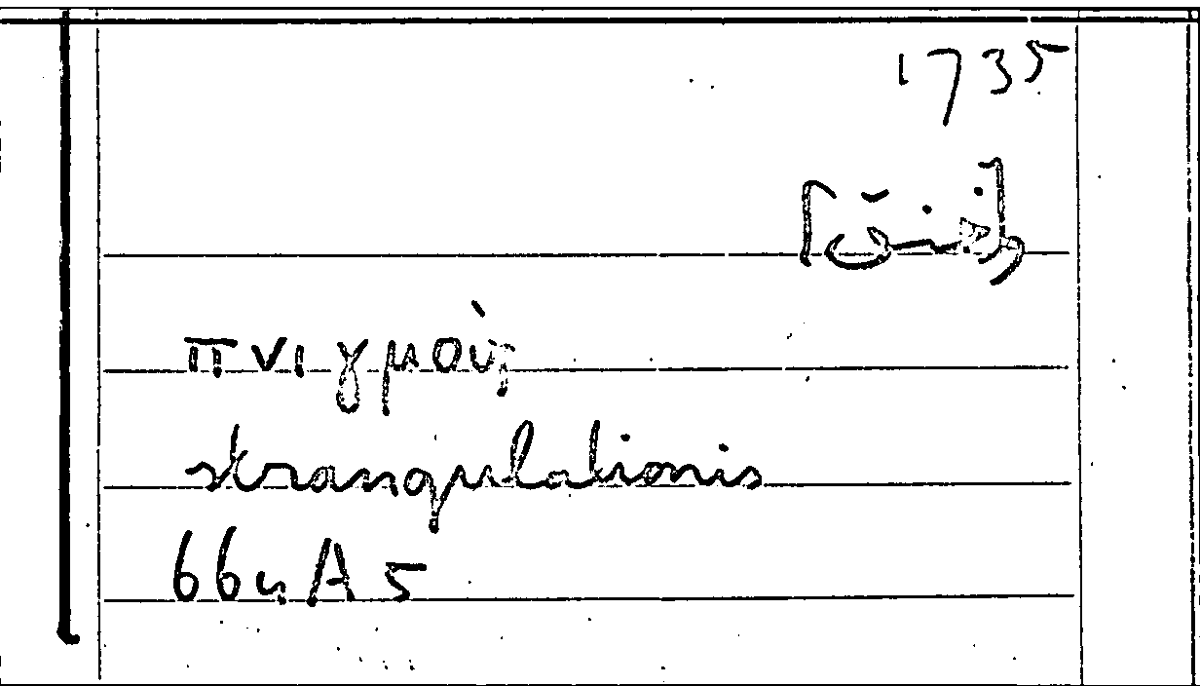 1735
πνιγμοὺς
strangulationis
66u A 5